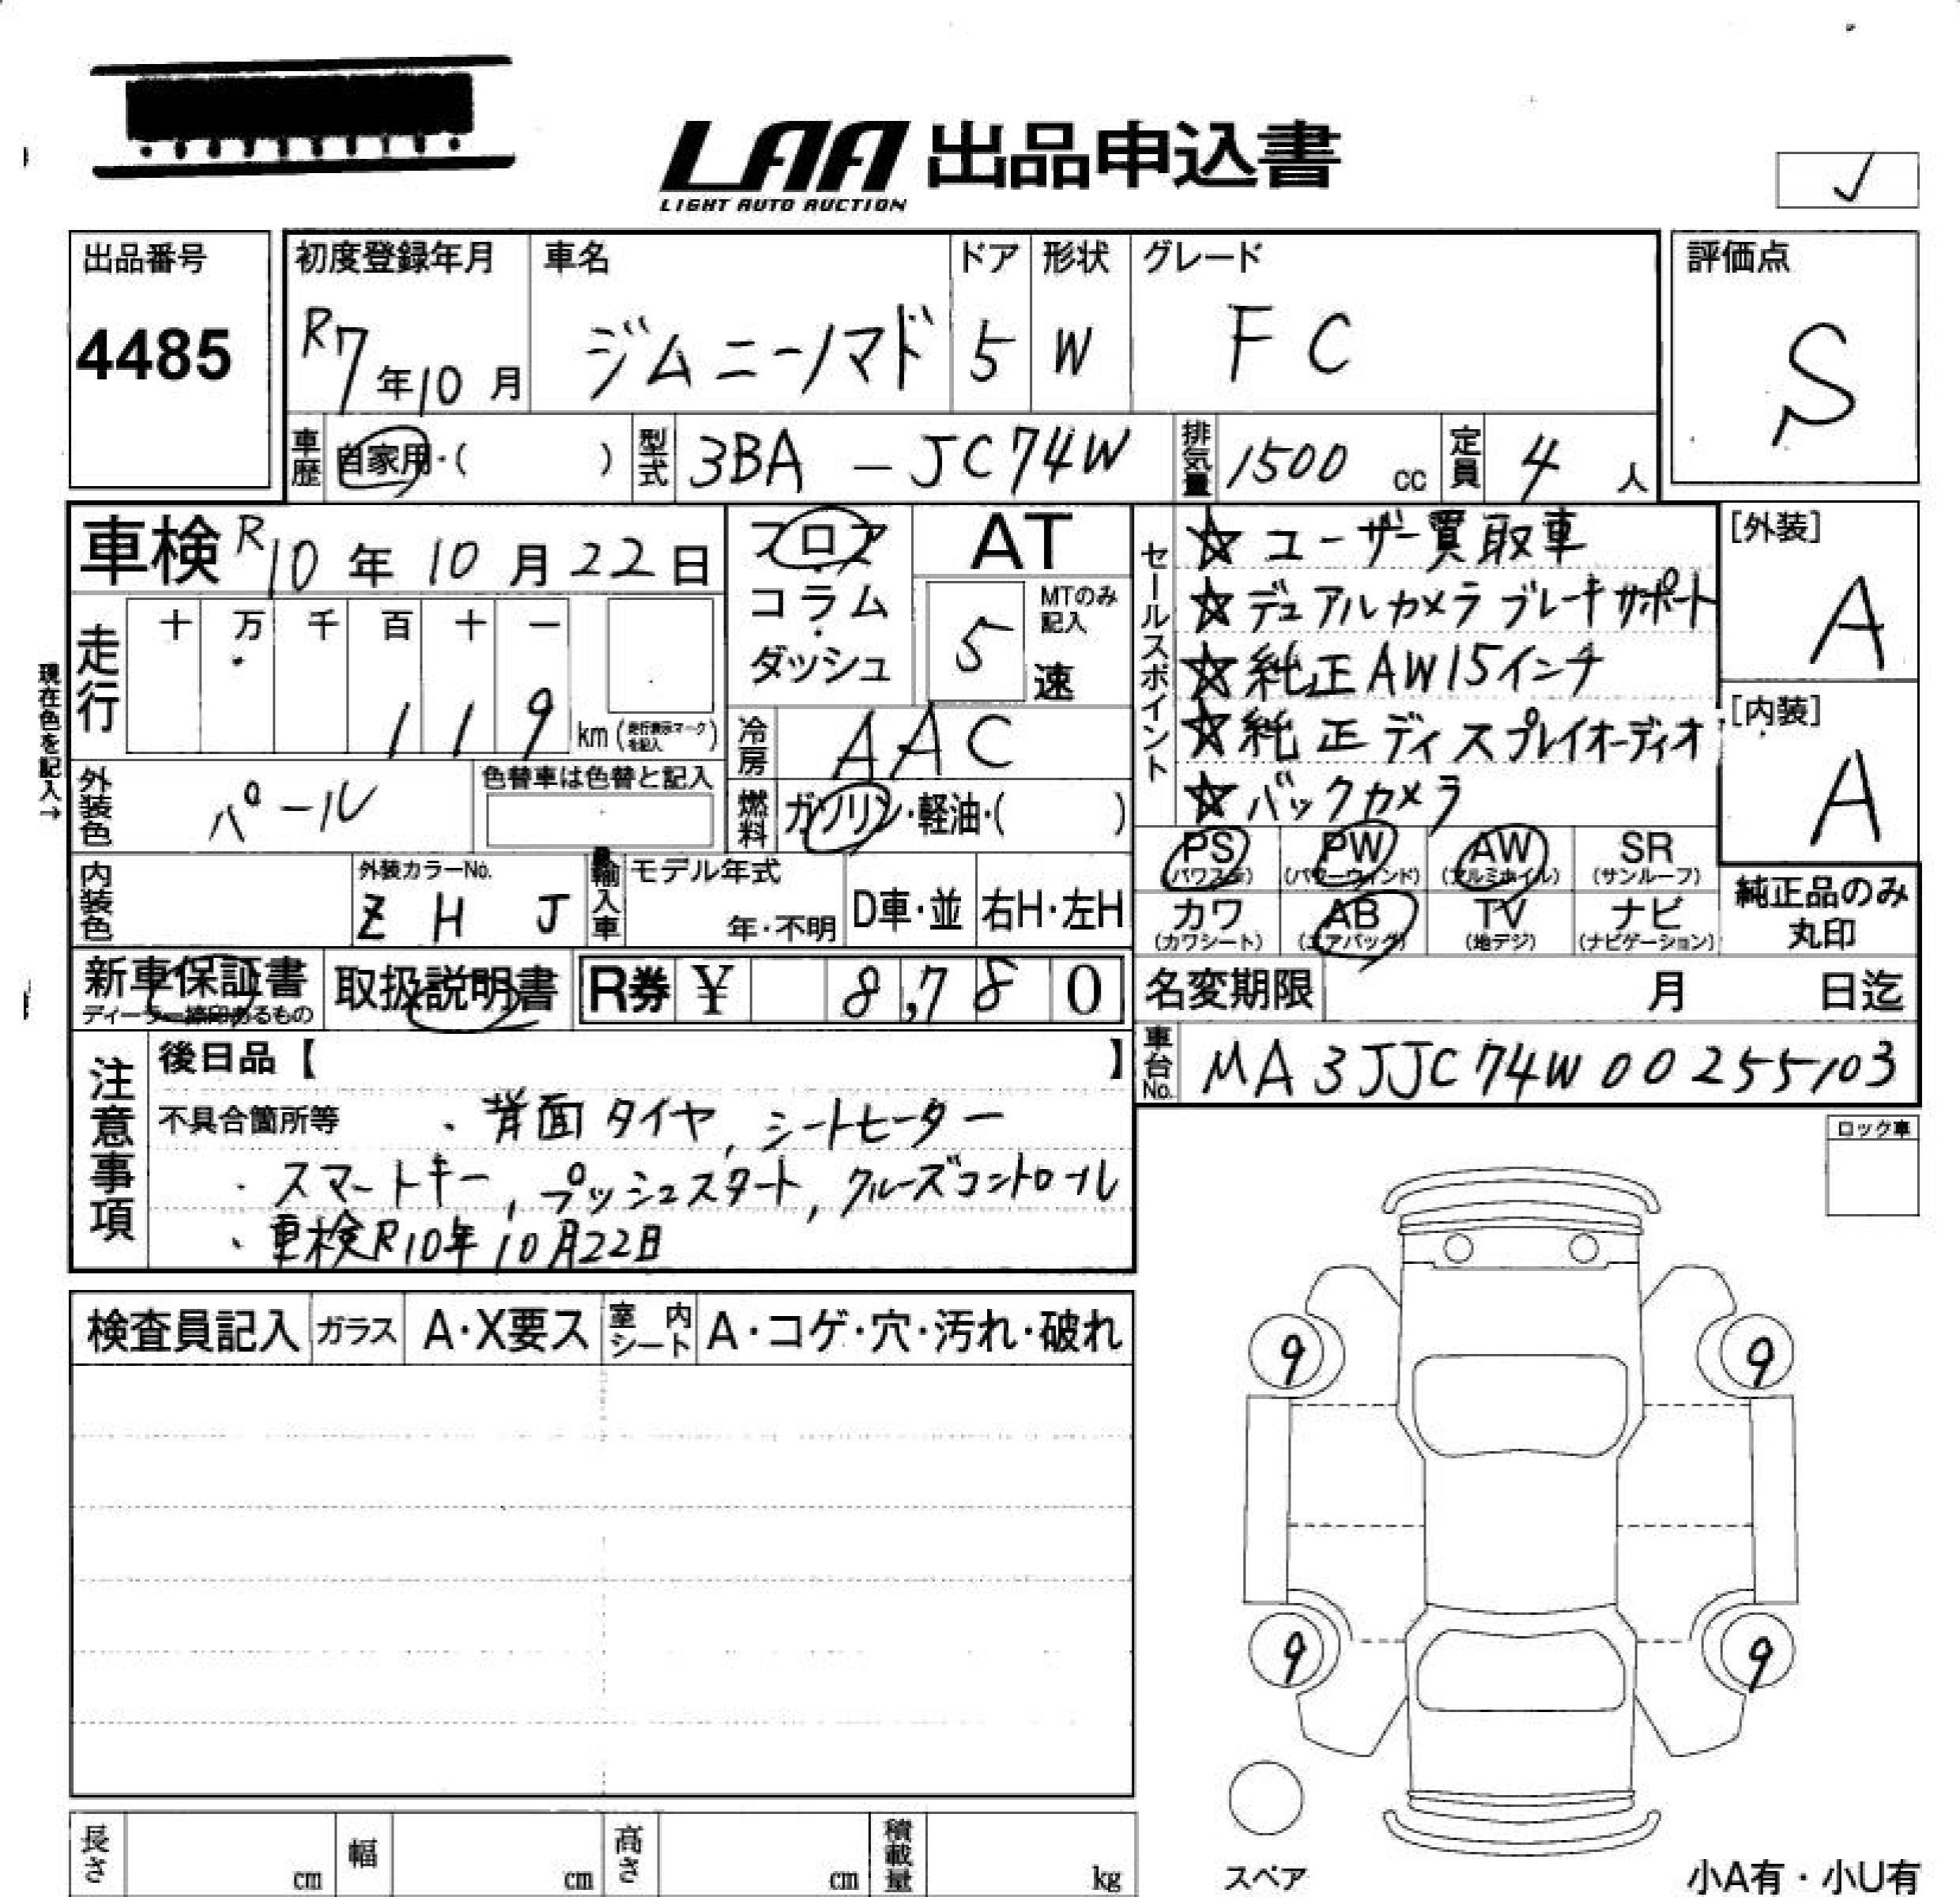 LAA 出品申込書
LIGHT AUTO AUCTION
✓
出品番号
4485
初度登録年月
R7年10月
車名
ジムニーノマド
ドア
5
形状
W
グレード
FC
評価点
S
車歴
自家用・( )
型式
3BA - JC74W
排気量
1500 cc
定員
4 人
車検 R10年10月22日
フロア
・
コラム
・
ダッシュ
AT
MTのみ記入
5 速
セールスポイント
☆ユーザー買取車
☆デュアルカメラブレーキサポート
☆純正AW15インチ
☆純正ディスプレイオーディオ
☆バックカメラ
[外装]
A
[内装]
A
現在色を記入→
走行
十 万 千 百 十 一
119 km(走行表示マークを記入)
冷房
AAC
外装色
パール
色替車は色替と記入
燃料
ガソリン・軽油・( )
内装色
外装カラーNo.
ZHJ
輸入車
モデル年式
年・不明
D車・並
右H・左H
PS (パワステ)
PW (パワーウィンド)
AW (アルミホイル)
SR (サンルーフ)
カワ (カワシート)
AB (エアバッグ)
TV (地デジ)
ナビ (ナビゲーション)
純正品のみ
丸印
新車保証書
ディーラー捺印あるもの
取扱説明書
R券 ¥ 8,780
名変期限 月 日迄
車台No.
MA3JJC74W00255103
注意事項
後日品【 】
不具合箇所等 ・背面タイヤ,シートヒーター
・スマートキー,プッシュスタート,クルーズコントロール
・車検R10年10月22日
ロック車
検査員記入
ガラス
A・X要ス
室内シート
A・コゲ・穴・汚れ・破れ
9 9
9 9
スペア
長さ cm
幅 cm
高さ cm
積載量 kg
小A有・小U有